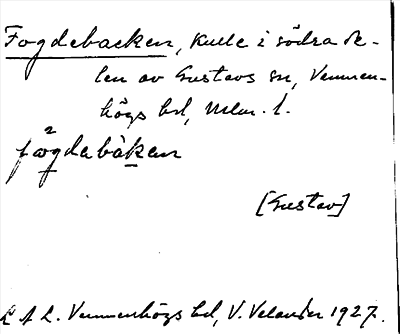 Fogdebacken, kulle i södra de-
len av Gustavs sn, Vemmen-
högs hd, Mlm. l.
fǫgdabàken
[Gustav]
L A L. Vemmenhögs hd, V. Velander 1927.